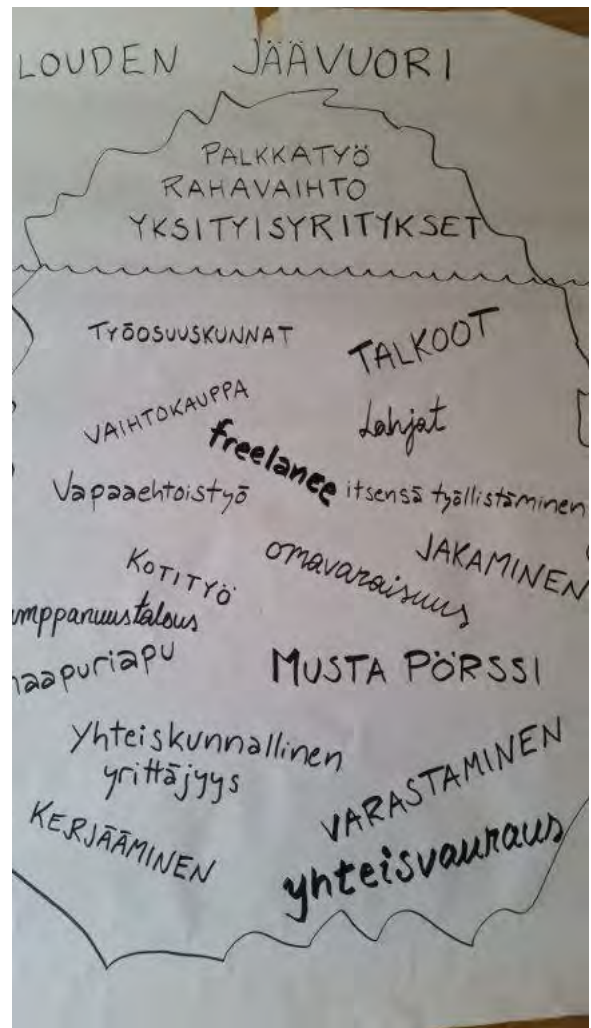 LOUDEN JÄÄVUORI
PALKKATYÖ
RAHAVAIHTO
YKSITYISYRITYKSET
TYÖOSUUSKUNNAT
TALKOOT
VAIHTOKAUPPA
Lahjat
freelance
Vapaaehtoistyö
itsensä työllistäminen
JAKAMINEN
KOTITYÖ
omavaraisuus
umppanuustalous
naapuriapu
MUSTA PÖRSSI
Yhteiskunnallinen
yrittäjyys
VARASTAMINEN
KERJÄÄMINEN
yhteisvauraus